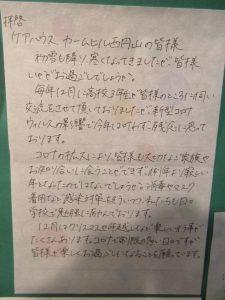 拝啓
ケアハウス カームヒル西円山の皆様
初雪も降り、寒くなってきましたが、皆様
いかがお過ごしでしょうか。
毎年12月に高校3年生が皆様のところに伺い
交流をさせて頂いておりましたが、新型コロナ
ウィルスの影響で今年は行けず、残念に思って
おります。
コロナの拡大により、皆様も大切なご家族や
お知り合いに会うことができず、例年より寂しい
年となったのではないでしょうか。消毒やマスク
着用など感染対策をしっかりし、わたしたちも日々
学校で勉強に励んでおります。
12月はクリスマスや年越しなど楽しい行事が
たくさんあります。コロナで制限の多い日々ですが
皆様が楽しくお過ごしになることを願っています。